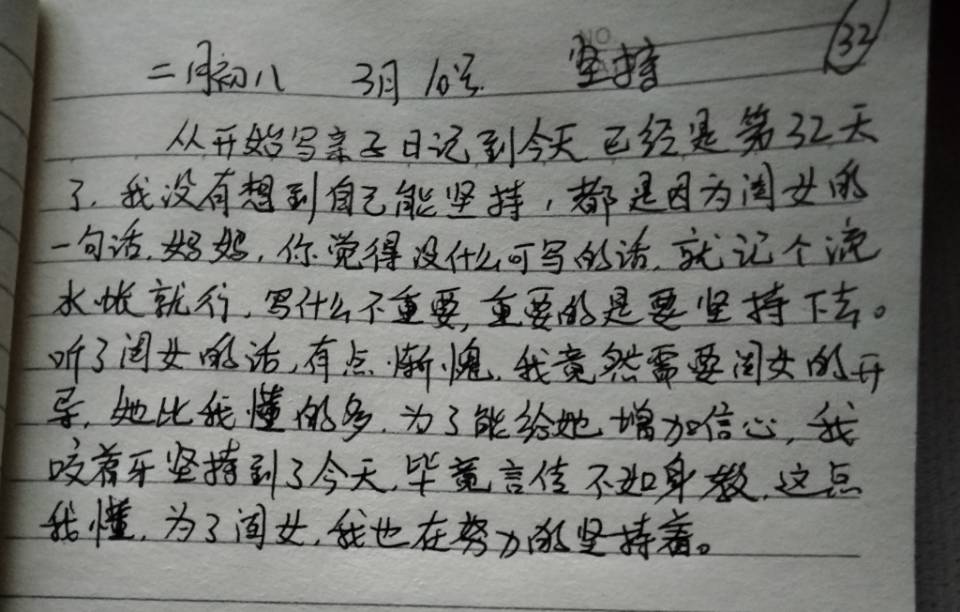 NO.
二月初八 3月10号. 坚持 32
从开始写亲子日记到今天已经是第32天
了,我没有想到自己能坚持,都是因为闺女的
一句话,妈妈,你觉得没什么可写的话,就记个流
水帐就行,写什么不重要,重要的是要坚持下去。
听了闺女的话,有点惭愧,我竟然需要闺女的开
导,她比我懂的多,为了能给她增加信心,我
咬着牙坚持到了今天,毕竟言传不如身教,这点
我懂,为了闺女,我也在努力的坚持着。